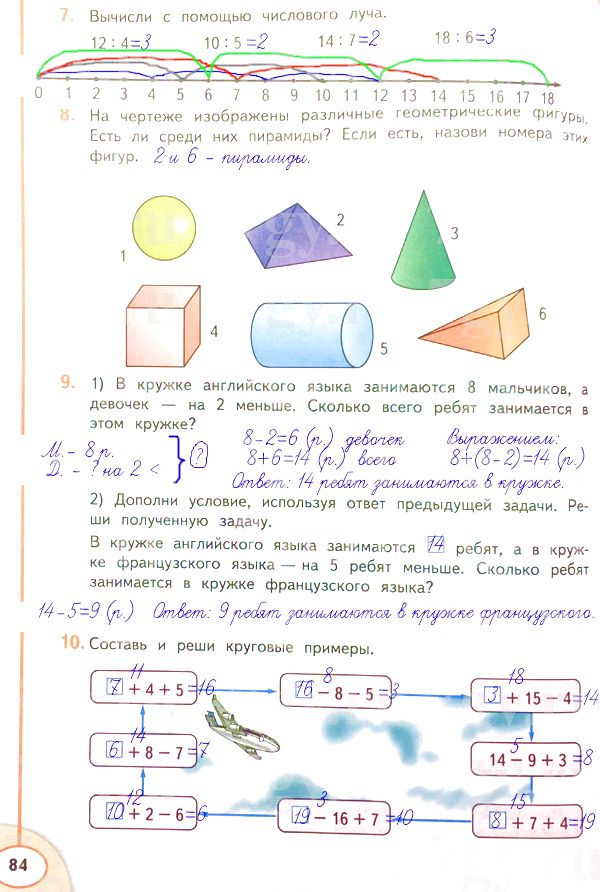 7. Вычисли с помощью числового луча.
12 : 4=3 10 : 5 =2 14 : 7=2 18 : 6=3
0 1 2 3 4 5 6 7 8 9 10 11 12 13 14 15 16 17 18
8. На чертеже изображены различные геометрические фигуры.
Есть ли среди них пирамиды? Если есть, назови номера этих
фигур. 2 и 6 - пирамиды.
1
2
3
4
5
6
9. 1) В кружке английского языка занимаются 8 мальчиков, а
девочек — на 2 меньше. Сколько всего ребят занимается в
этом кружке?
М. - 8 р. 8-2=6 (р.) девочек Выражением:
Д. - ? на 2 < } ? 8+6=14 (р.) всего 8+(8-2)=14 (р.)
Ответ: 14 ребят занимаются в кружке.
2) Дополни условие, используя ответ предыдущей задачи. Ре-
ши полученную задачу.
В кружке английского языка занимаются 14 ребят, а в круж-
ке французского языка — на 5 ребят меньше. Сколько ребят
занимается в кружке французского языка?
14-5=9 (р.) Ответ: 9 ребят занимаются в кружке французского.
10. Составь и реши круговые примеры.
11 8 18
7 + 4 + 5=16 16 − 8 − 5=3 3 + 15 − 4=14
14 5
6 + 8 − 7=7 14 − 9 + 3=8
12 3 15
10 + 2 − 6=6 19 − 16 + 7=10 8 + 7 + 4=19
84